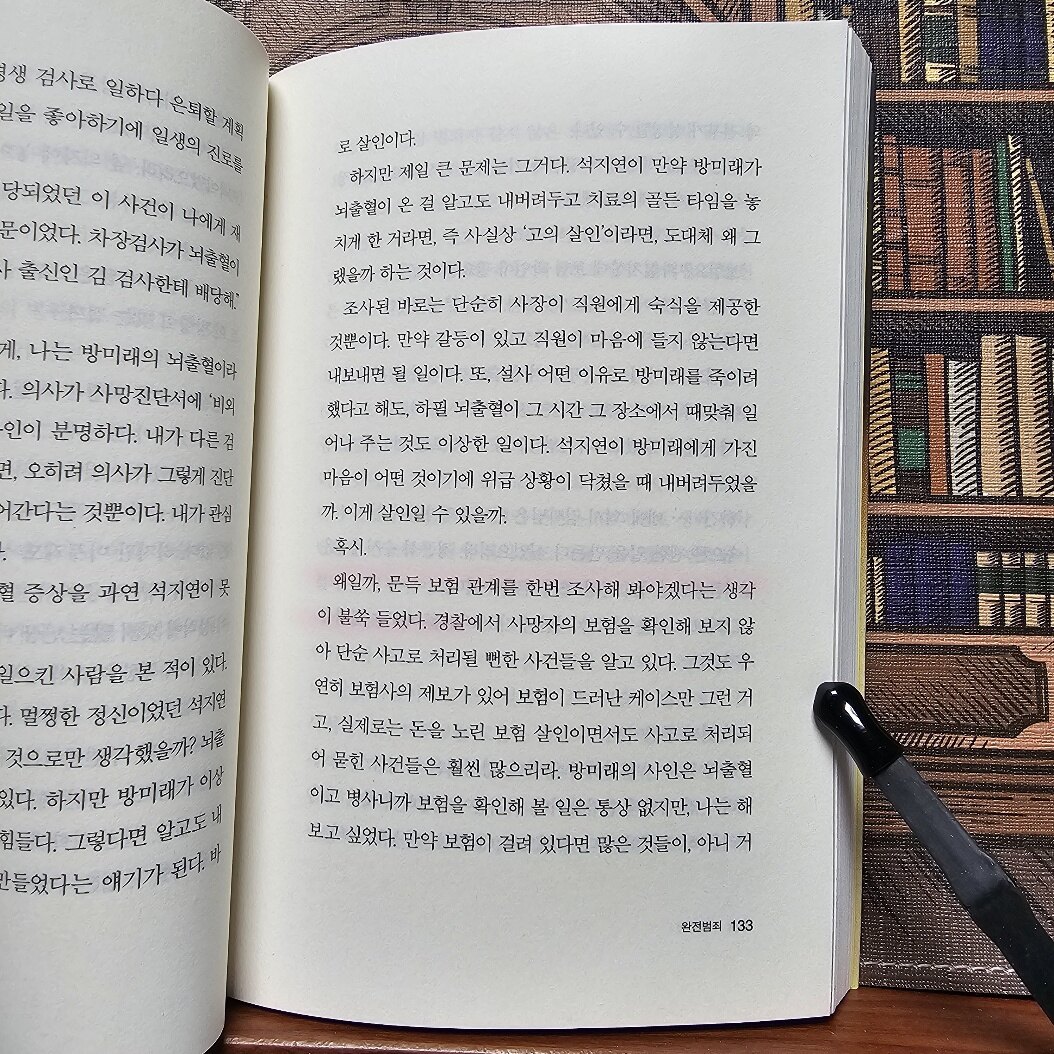 평생 검사로 일하다 은퇴할 계획
일을 좋아하기에 일생의 진로를
당되었던 이 사건이 나에게 재
문이었다. 차장검사가 뇌출혈이
사 출신인 김 검사한테 배당해."
게, 나는 방미래의 뇌출혈이라
다. 의사가 사망진단서에 '비외
인이 분명하다. 내가 다른 검
면, 오히려 의사가 그렇게 진단
어간다는 것뿐이다. 내가 관심
혈 증상을 과연 석지연이 못
일으킨 사람을 본 적이 있다.
다. 멀쩡한 정신이었던 석지연
것으로만 생각했을까? 뇌출
있다. 하지만 방미래가 이상
힘들다. 그렇다면 알고도 내
만들었다는 얘기가 된다. 바
로 살인이다.
하지만 제일 큰 문제는 그거다. 석지연이 만약 방미래가
뇌출혈이 온 걸 알고도 내버려두고 치료의 골든 타임을 놓
치게 한 거라면, 즉 사실상 '고의 살인'이라면, 도대체 왜 그
랬을까 하는 것이다.
조사된 바로는 단순히 사장이 직원에게 숙식을 제공한
것뿐이다. 만약 갈등이 있고 직원이 마음에 들지 않는다면
내보내면 될 일이다. 또, 설사 어떤 이유로 방미래를 죽이려
했다고 해도, 하필 뇌출혈이 그 시간 그 장소에서 때맞춰 일
어나 주는 것도 이상한 일이다. 석지연이 방미래에게 가진
마음이 어떤 것이기에 위급 상황이 닥쳤을 때 내버려두었을
까. 이게 살인일 수 있을까.
혹시.
왜일까, 문득 보험 관계를 한번 조사해 봐야겠다는 생각
이 불쑥 들었다. 경찰에서 사망자의 보험을 확인해 보지 않
아 단순 사고로 처리될 뻔한 사건들을 알고 있다. 그것도 우
연히 보험사의 제보가 있어 보험이 드러난 케이스만 그런 거
고, 실제로는 돈을 노린 보험 살인이면서도 사고로 처리되
어 묻힌 사건들은 훨씬 많으리라. 방미래의 사인은 뇌출혈
이고 병사니까 보험을 확인해 볼 일은 통상 없지만, 나는 해
보고 싶었다. 만약 보험이 걸려 있다면 많은 것들이, 아니 거
완전범죄 133